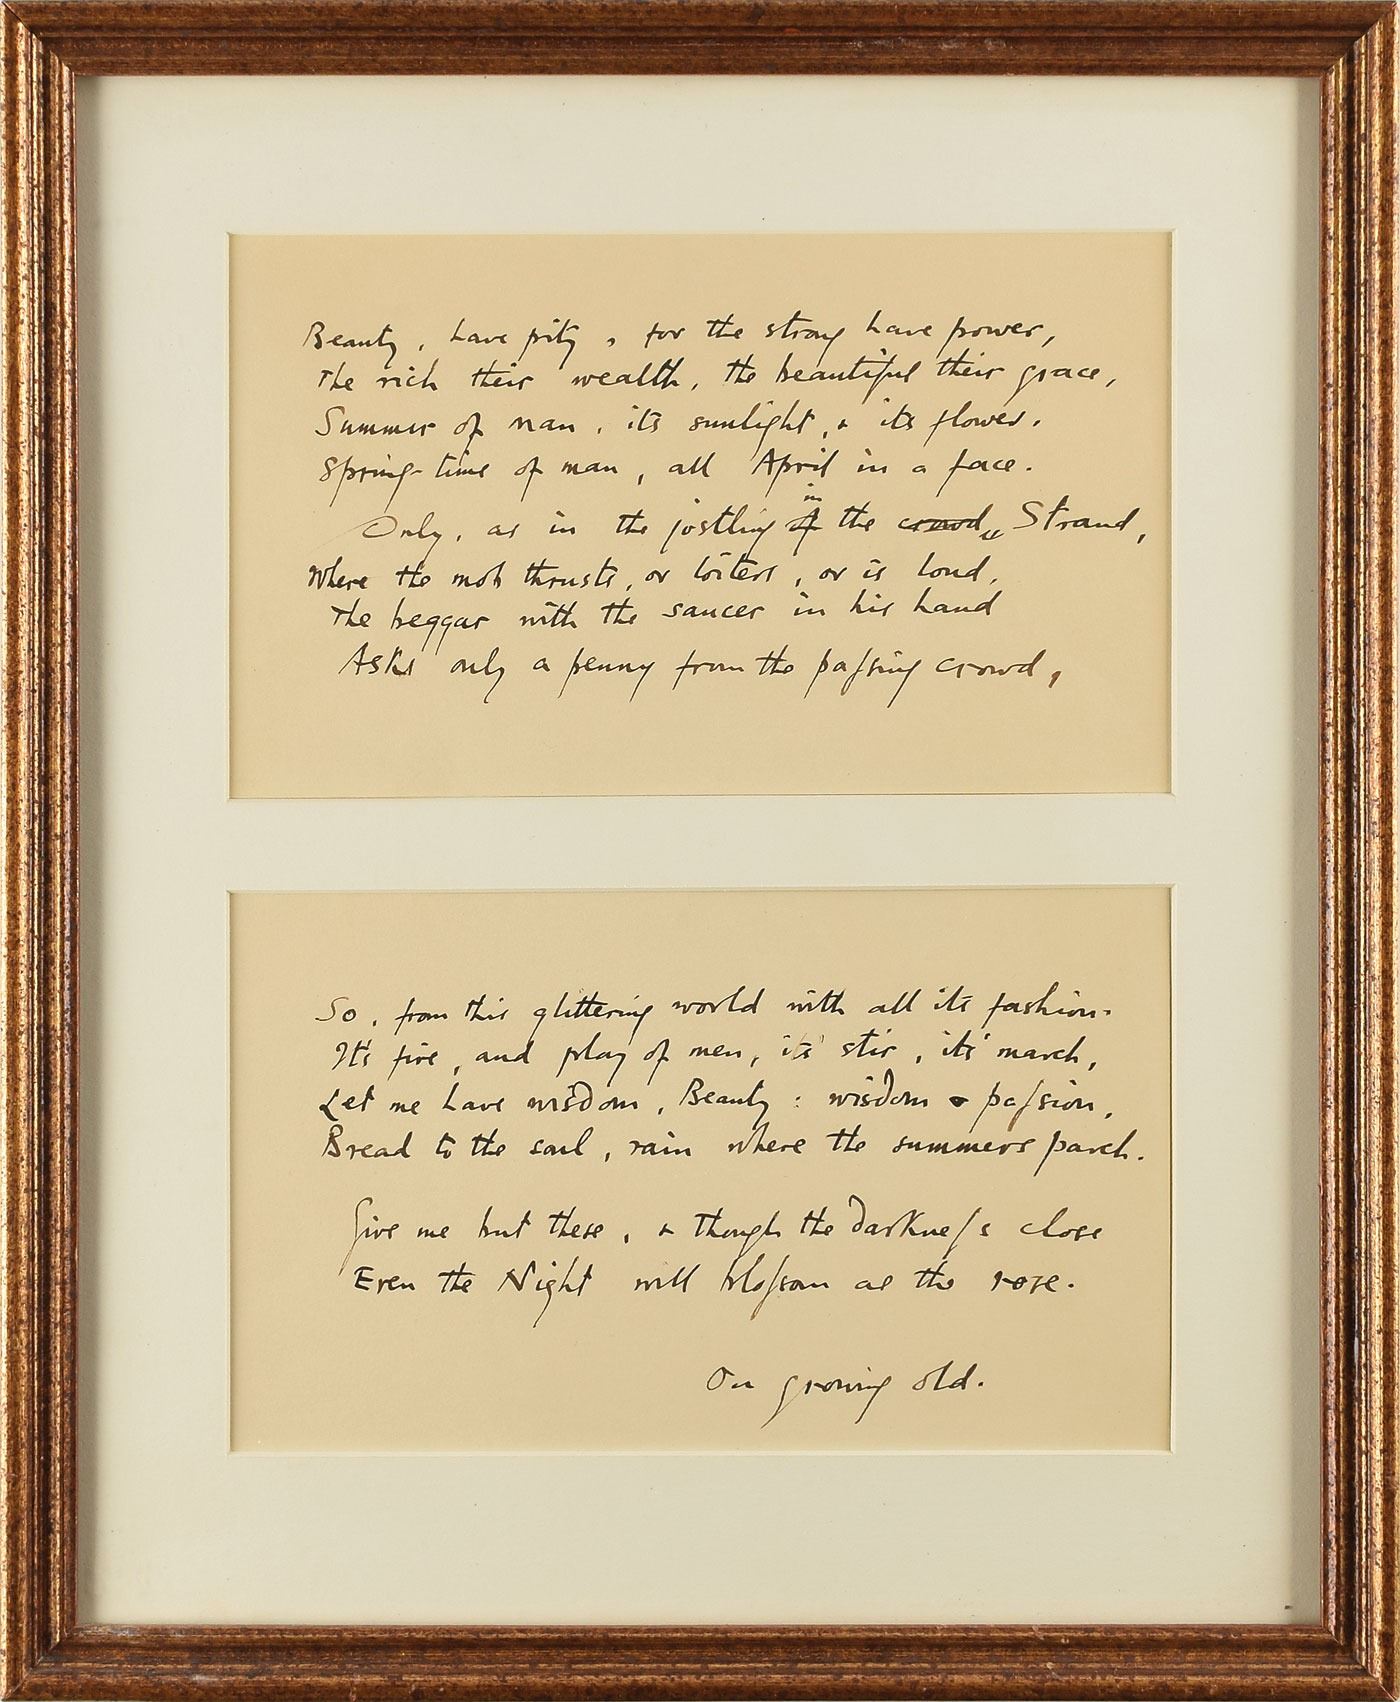 Beauty, have pity, for the strong have power,
The rich their wealth, the beautiful their grace,
Summer of man, its sunlight, & its flower.
Spring-time of man, all April in a face.
Only, as in the jostling in the Strand,
Where the mob thrusts, or loiters, or is loud,
The beggar with the saucer in his hand
Asks only a penny from the passing crowd,
So, from this glittering world with all its fashion.
It's fire, and play of men, its stir, its march,
Let me have wisdom, Beauty: wisdom & passion,
Bread to the soul, rain where the summers parch.
Give me but these, & though the darkness close
Even the Night will blossom as the rose.
On growing old.